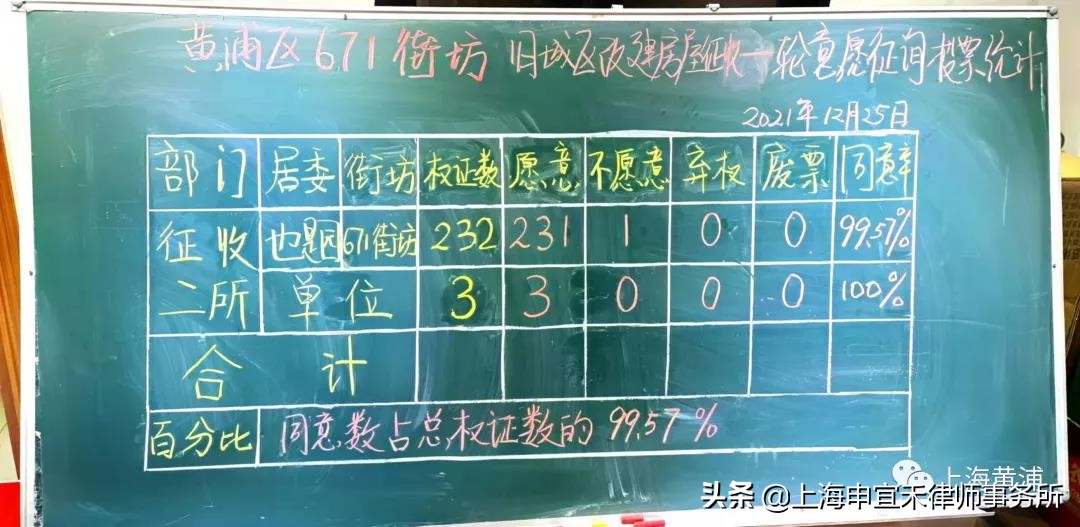 黄浦区671街坊 旧城区改建房屋征收一轮意愿征询投票统计
2021年12月25日
部门 居委 街坊 权证数 愿意 不愿意 弃权 废票 同意率
征收 也是园 671街坊 232 231 1 0 0 99.57%
二所 单位 3 3 0 0 0 100%
合计
百分比 同意数占总权证数的 99.57%
上海黄浦
头条 @上海申宜禾律师事务所